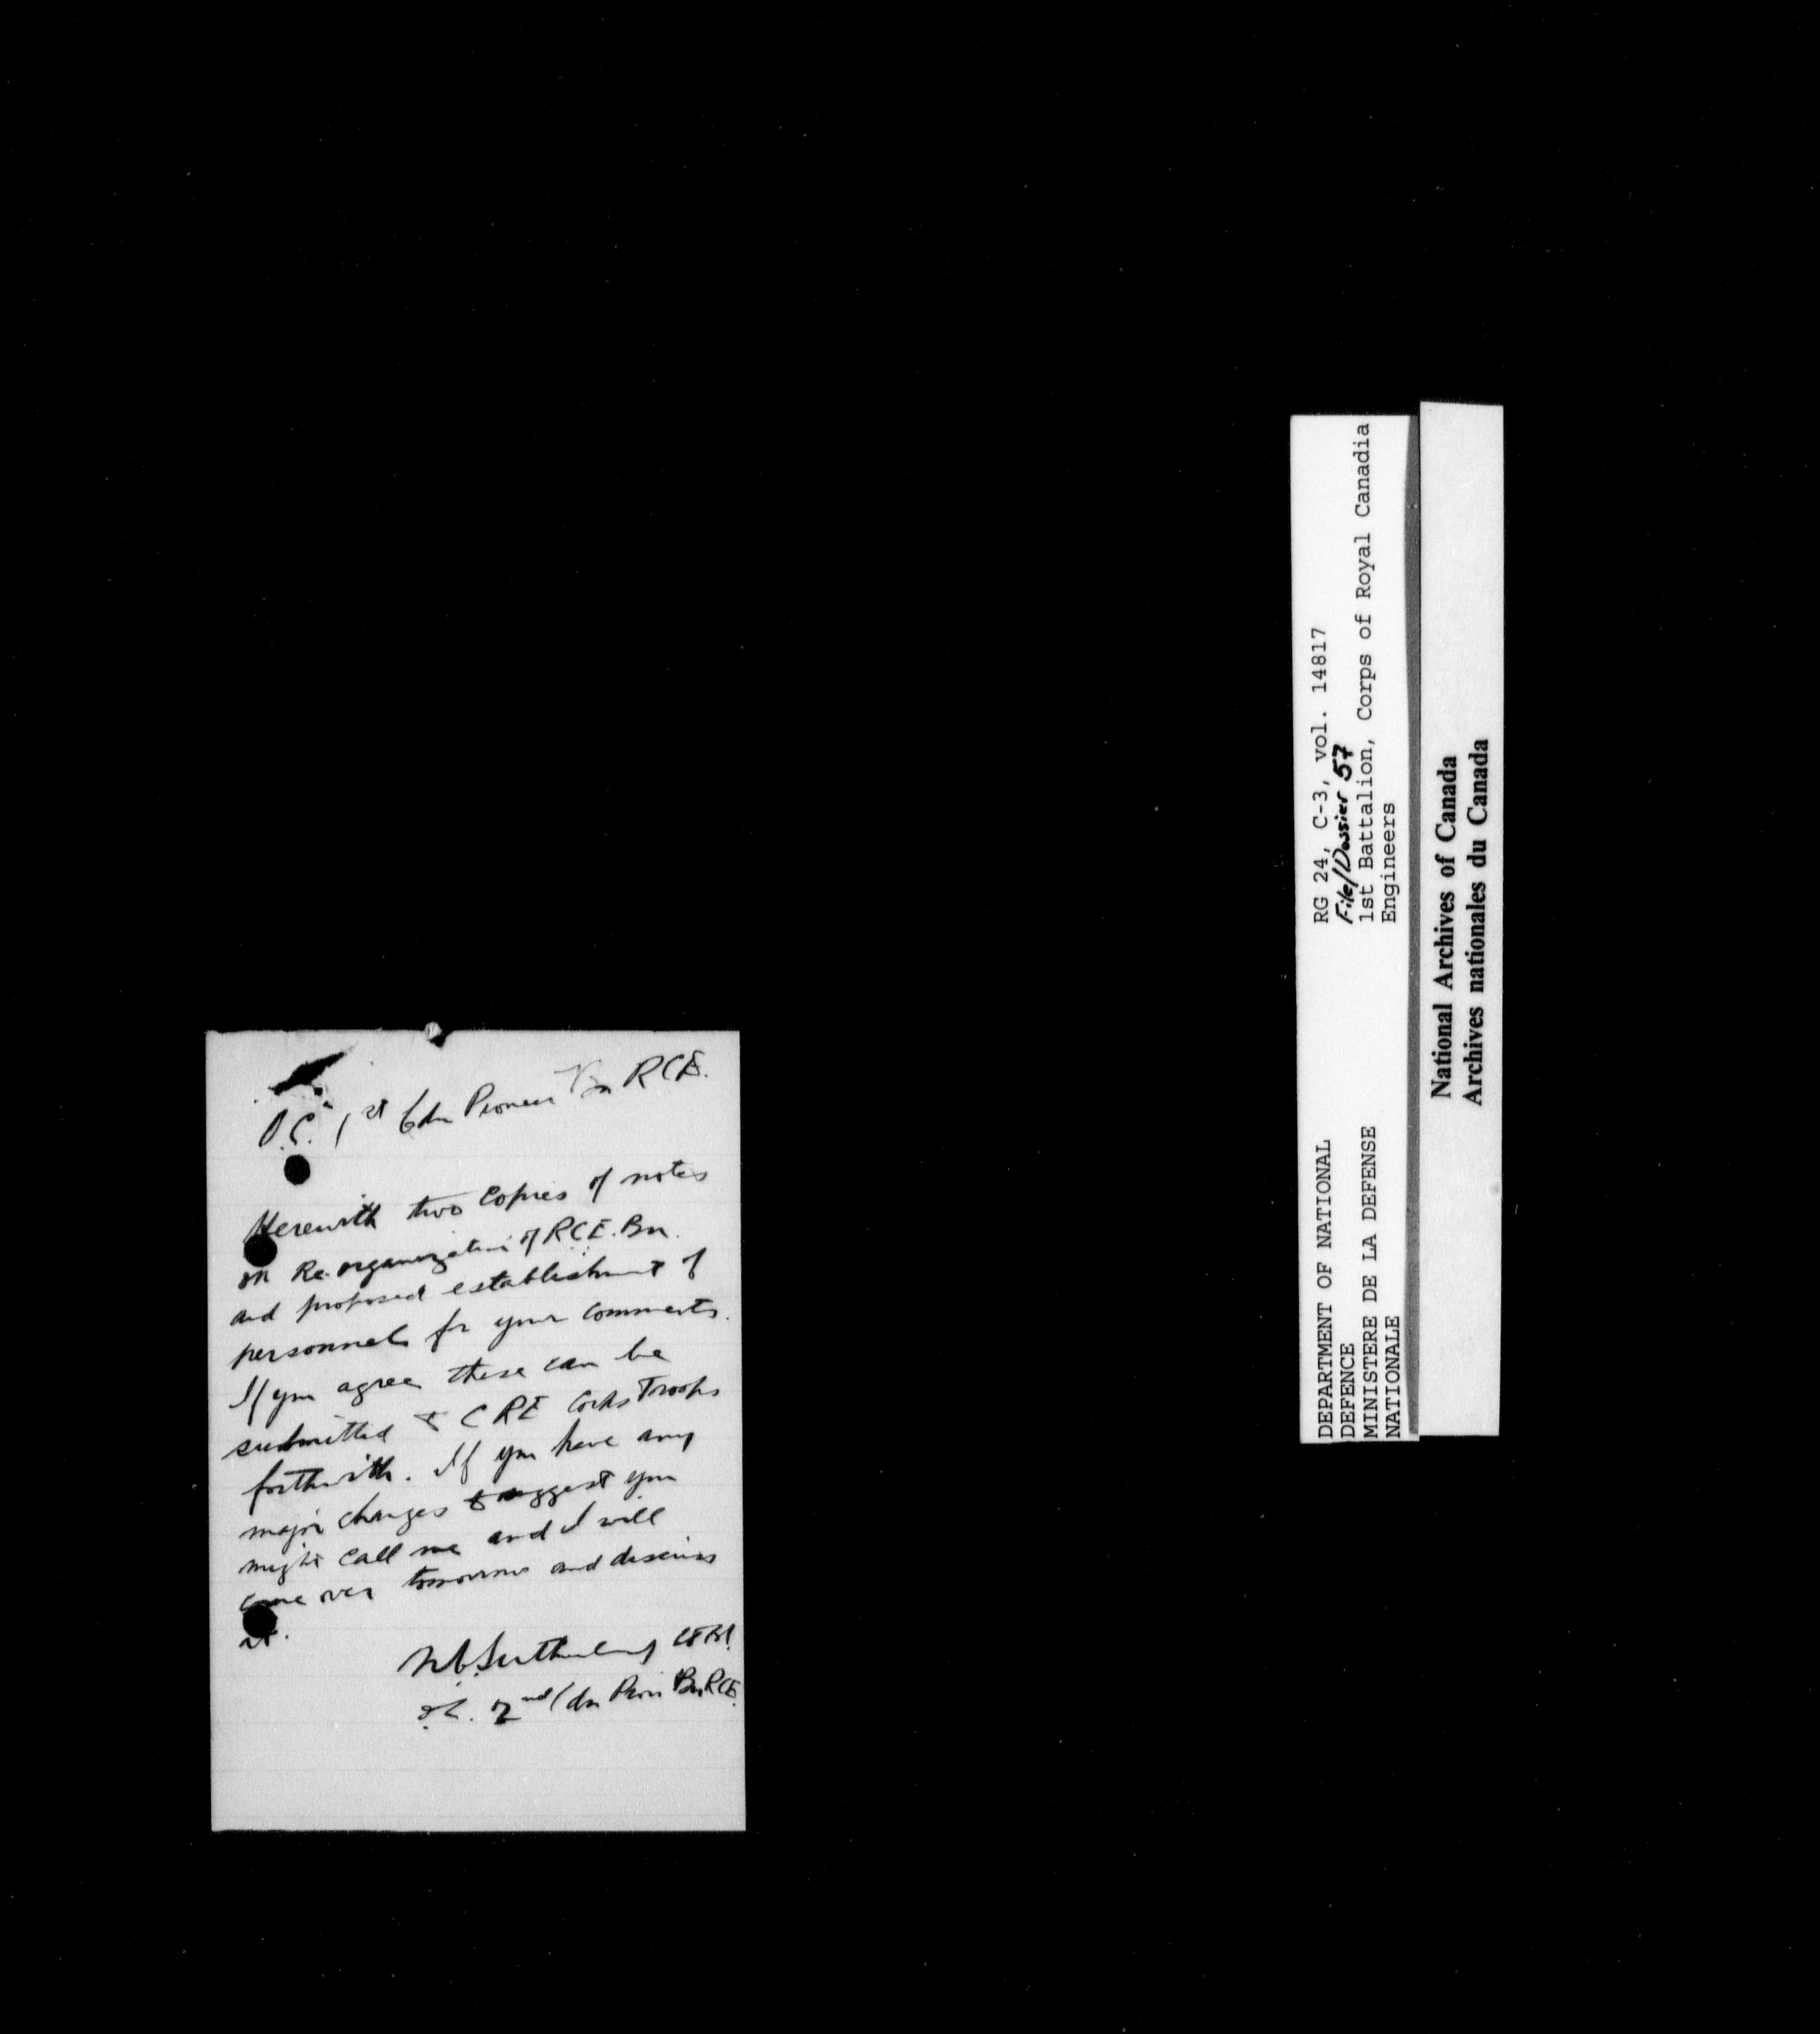 O.C. 1st Cdn Pioneer Bn RCE.
Herewith two copies of notes
on Re-organization of RCE. Bn.
and proposed establishment of
personnel for your comments.
If you agree these can be
submitted to CRE Corps Troops
forthwith. If you have any
major changes to suggest you
might call me and I will
come over tomorrow and discuss
it.
Sutherland
2nd Cdn Pion Bn RCE.
RG 24, C-3, vol. 14817
File/Dossier 57
1st Battalion, Corps of Royal Canadia
Engineers
DEPARTMENT OF NATIONAL
DEFENCE
MINISTERE DE LA DEFENSE
NATIONALE
National Archives of Canada
Archives nationales du Canada